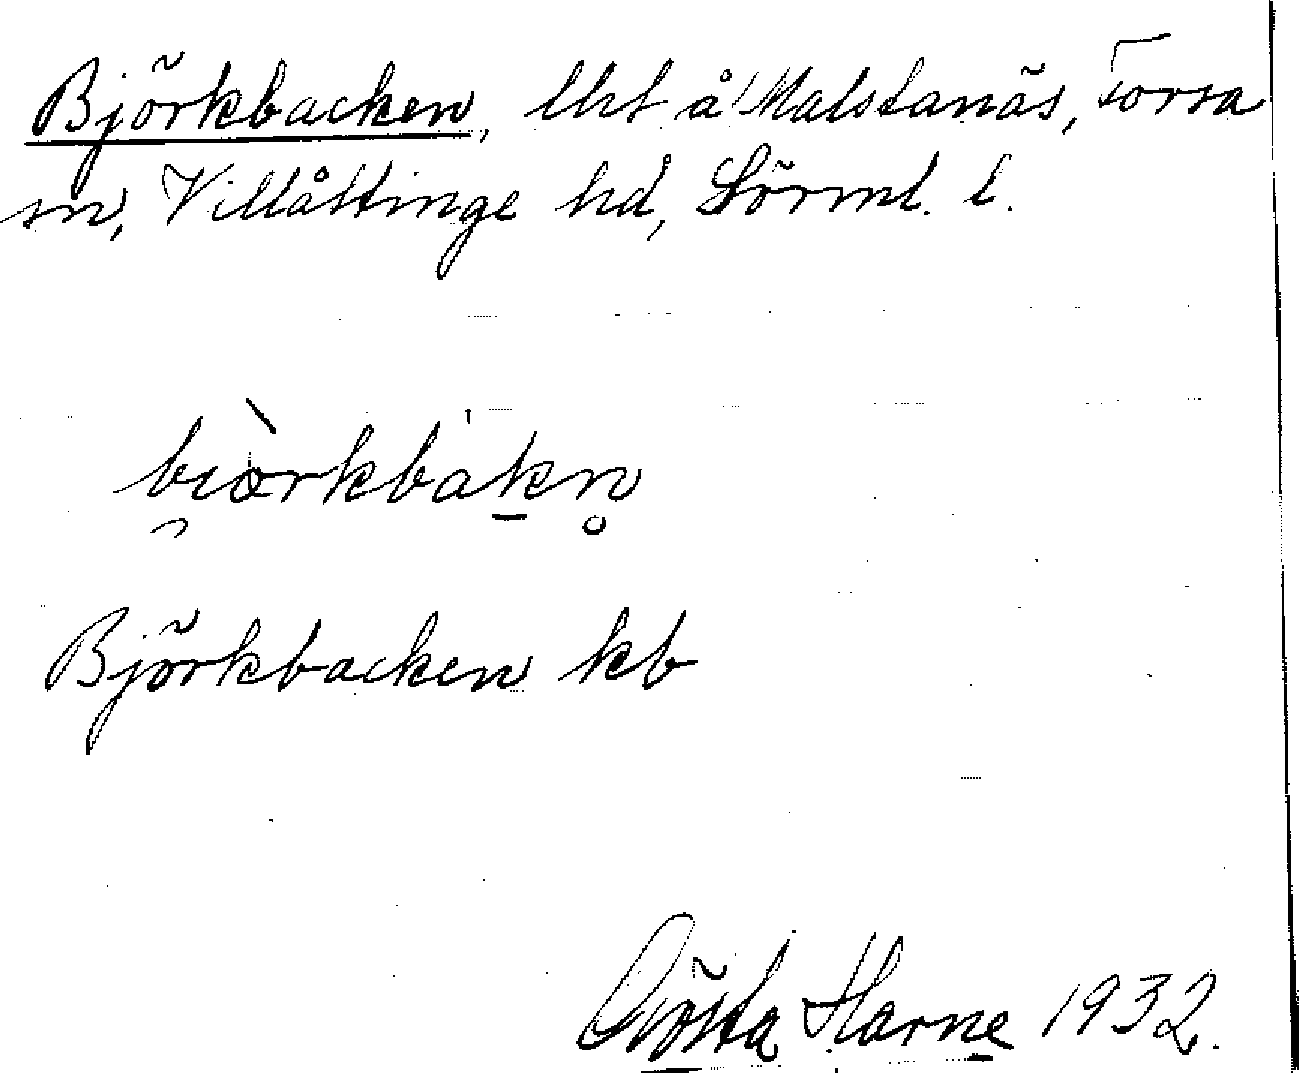 Björkbacken, lht å Malstanäs, Forssa
sn, Villåttinge hd, Sörml. l.
bi̯ö̀rkbàk̠n̥
Björkbacken kb
Gösta Harne 1932.